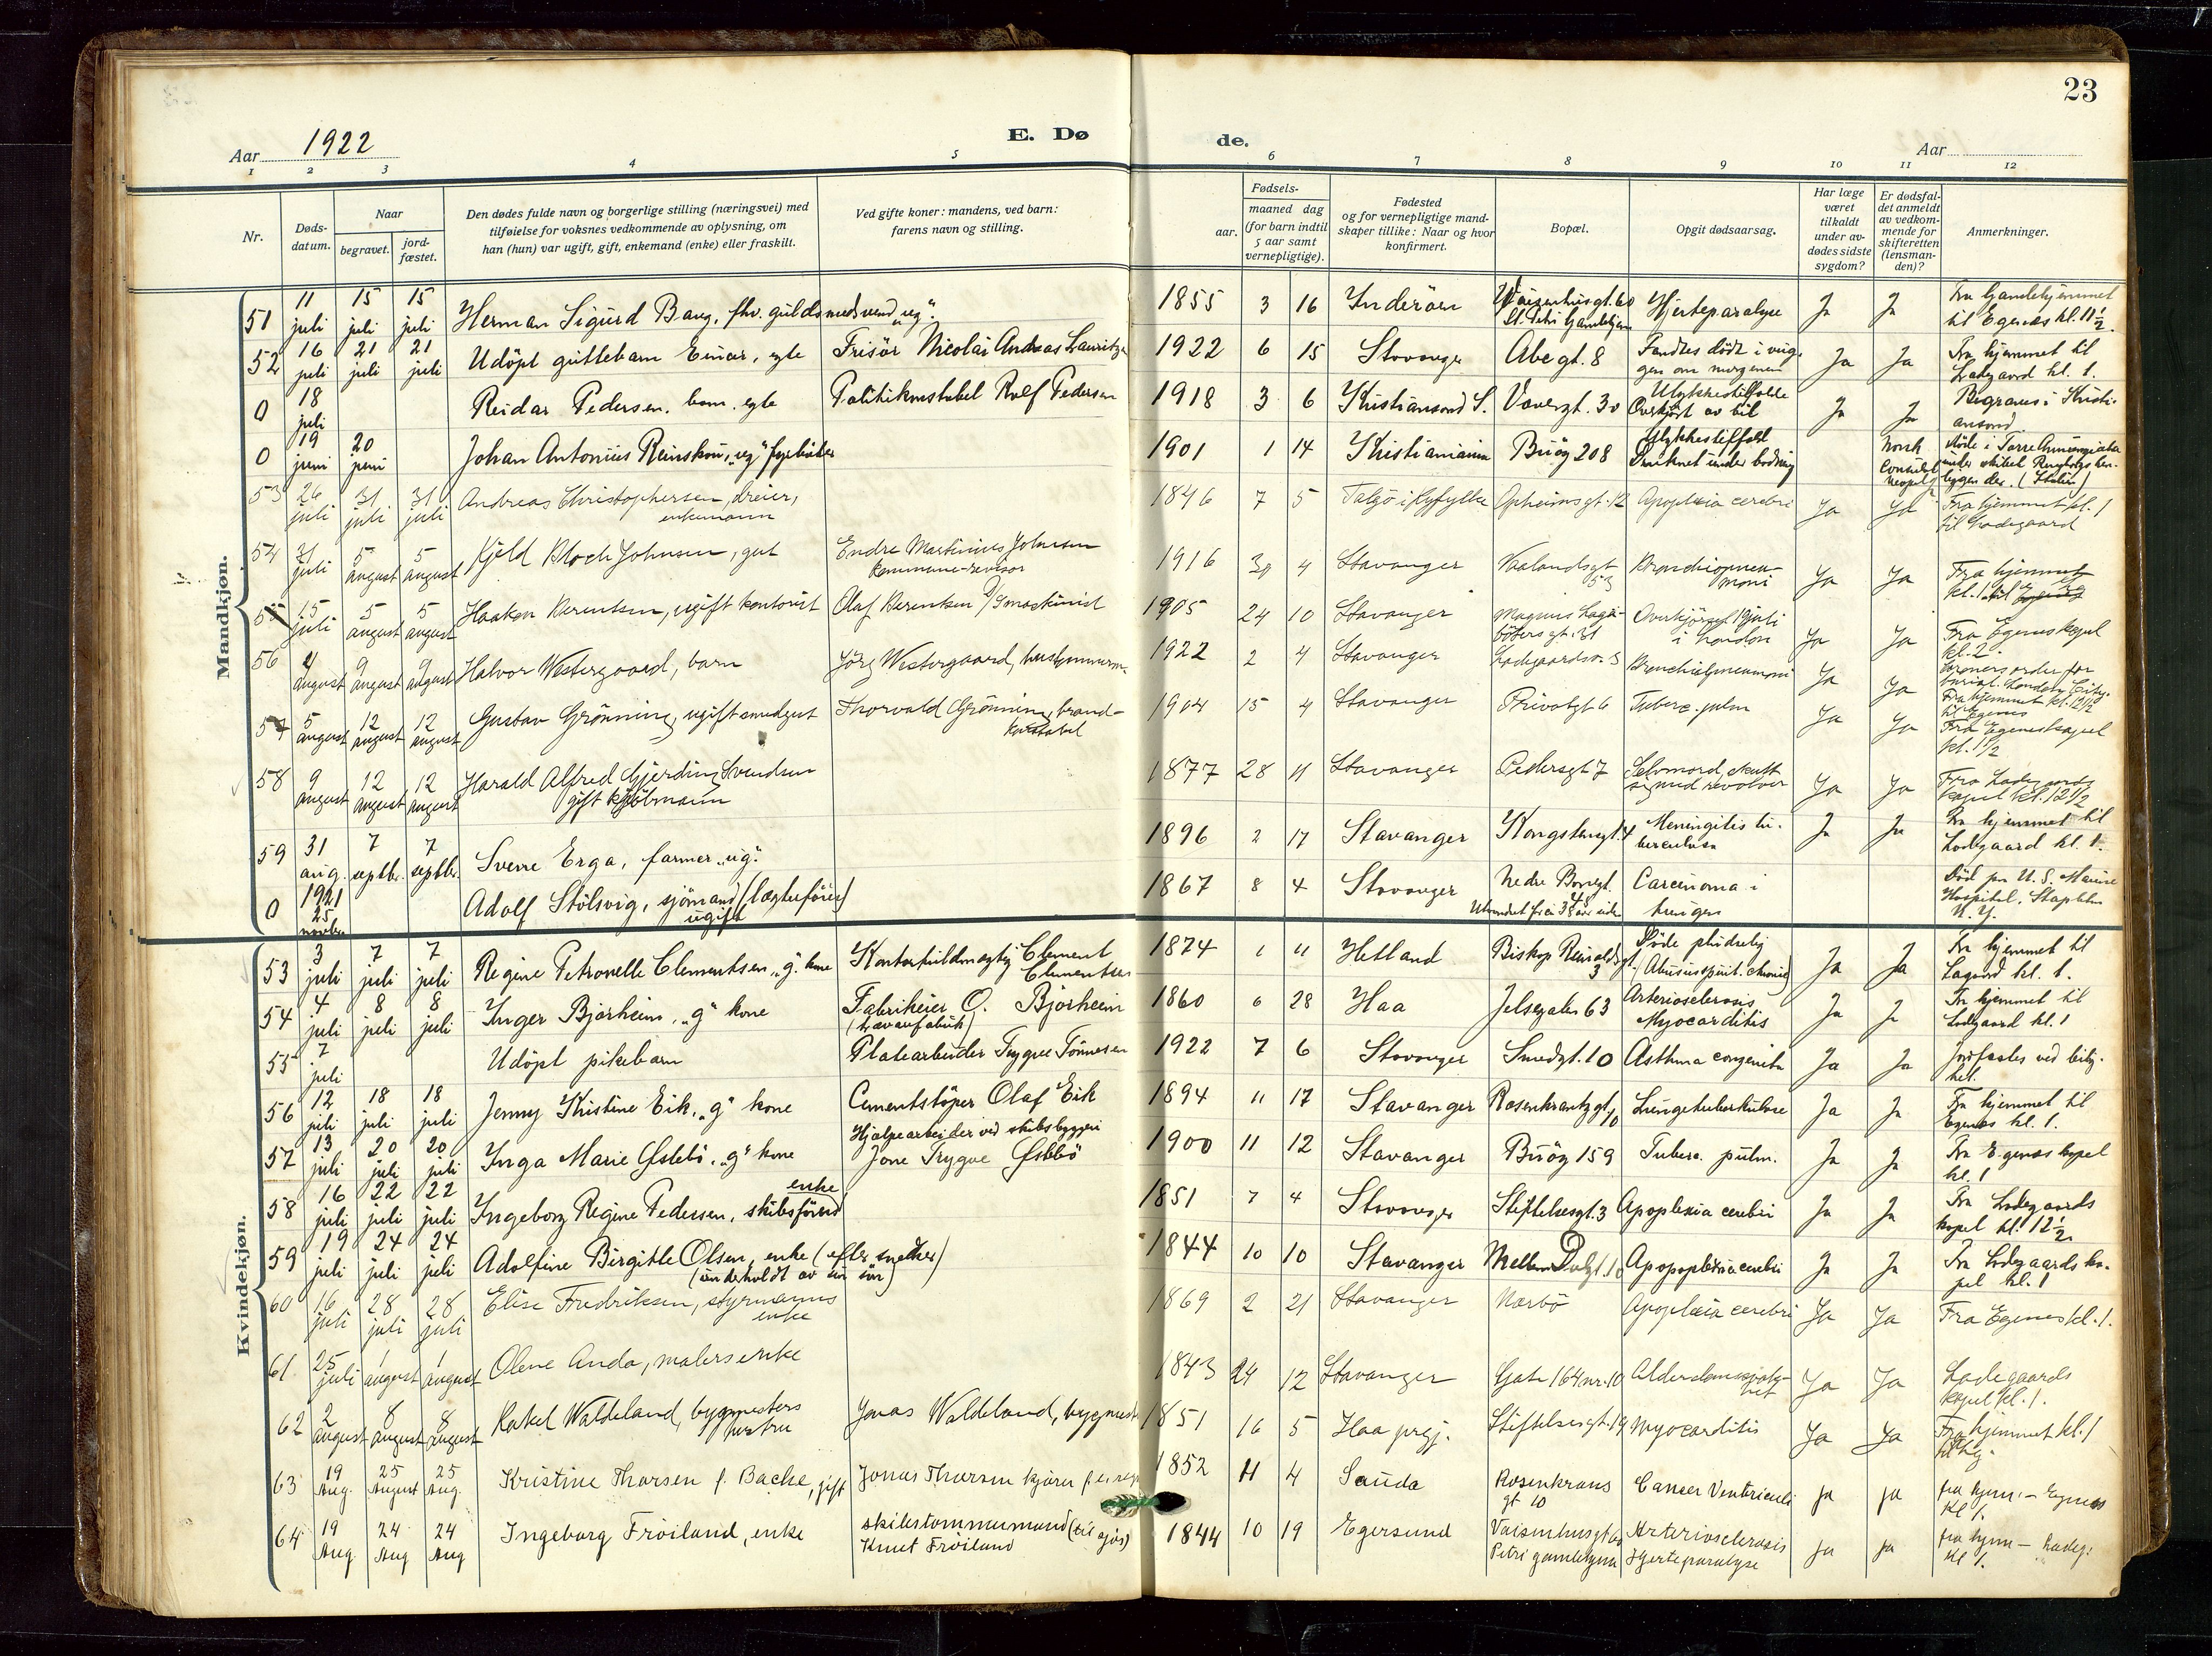 23
Aar 1922
E. Dø
de.
Aar
1 2 3 4 5 6 7 8 9 10 11 12
Nr.
Døds-
datum.
Naar
begravet.
jord-
fæstet.
Den dødes fulde navn og borgerlige stilling (næringsvei) med
tilføielse for voksnes vedkommende av oplysning, om
han (hun) var ugift, gift, enkemand (enke) eller fraskilt.
Ved gifte koner: mandens, ved barn:
farens navn og stilling.
Fødsels-
aar. maaned dag
(for barn indtil
5 aar samt
vernepligtige).
Fødested
og for vernepligtige mand-
skaper tillike: Naar og hvor
konfirmert.
Bopæl.
Opgit dødsaarsag.
Har læge
været
tilkaldt
under av-
dødes sidste
sygdom?
Er dødsfal-
det anmeldt
av vedkom-
mende for
skifteretten
(lensman-
den)?
Anmerkninger.
Mandkjøn.
51 11 juli 15 juli 15 juli Herman Sigurd Baug, fhv. guldsmedsvend "ug". 1855 3 16 Inderöen Vaisenhusgt. 60 St. Petri Gamlehjem Hjerteparalyse Ja Ja Fra Gamlehjemmet til Egenæs kl. 11 1/2.
52 16 juli 21 juli 21 juli Udöpt guttebarn Einar, egte Frisör Nicolai Andreas Lauritzen 1922 6 15 Stavanger Abegt. 8 Fandtes död i vuggen om morgenen Ja Ja Fra hjemmet til Ladegaard kl. 1.
0 18 juli Reidar Pedersen, barn, egte Politikonstabel Rolf Pedersen 1918 3 6 Kristiansand S. Vaaergt. 30 Ulykkestilfælde Overkjört av bil Ja Ja Begraves i Kristiansand
0 19 juni 20 juni Johan Antonius Reinskou, "ug" fyrböter 1901 1 14 Kristiania Buög 208 Ulykkestilfæld Druknet under badning Norsk Consulat Neapel döde i Torre Annunziata under skibet Ringborgs henliggen der. (Italien)
53 26 juli 31 juli 31 juli Andreas Christophersen, dreier, enkemann 1846 7 5 Talgö i Ryfylke Opheimsgt. 12 Apoplexia cerebri Ja Ja Fra hjemmet kl. 1 til Ladegaard
54 31 juli 5 august 5 august Kjeld Bloch Johnsen, gut Endre Martinius Johnsen kommune-revisor 1916 30 4 Stavanger Vaalandsgt 53 Bronchiopneumoni Ja Ja Fra hjemmet kl. 1 til Egenes
55 15 juli 5 august 5 august Haakon Berentsen, ugift kontorist Olaf Berentsen maskinist 1905 24 10 Stavanger Magnus Lagabötersgt. 31 Overkjöret juli i London Ja Ja Fra Egenes kapel kl. 2. Coroners order for burial. London City.
56 4 august 9 august 9 august Halvor Westergaard, barn Jörg Westergaard, 1922 2 4 Stavanger Ladegaardsv. 3 Bronchialpneumoni Ja Ja Fra hjemmet kl. 12 1/2 til Egenes
57 5 august 12 august 12 august Gustav Grönning, ugift smedgut Thorvald Grönning, brandkonstabel 1904 15 4 Stavanger Privatgt 6 Tuberc. pulm Ja Ja Fra Egenes kapel kl. 1 1/2
58 9 august 12 august 12 august Harald Alfred Gjerding Svendsen gift kjöbmann 1877 28 11 Stavanger Pedersgt 7 Selvmord, skutt sig med revolver Ja Ja Fra Ladegaards kapel kl. 12 1/2
59 31 aug. 7 septbr. 7 septbr. Sverre Erga, farmer "ug". 1896 2 17 Stavanger Kongstensgt. 4 Meningitis tuberculosa Ja Ja Fra hjemmet til Ladegaard kl. 1.
0 1921 25 novbr. Adolf Stölsvig, sjömand (lægterförer) ugift 1867 8 4 Stavanger Nedre Banegt. Utvandret for ca 38 aar siden Carcinoma i tungen Död paa U. S. Marine Hospital, Stapleton N. Y.
Kvindekjøn.
53 3 juli 7 juli 7 juli Regine Petronelle Clementsen "g." kone Kontorfuldmægtig Clement Clementsen 1874 1 11 Hetland Biskop Reinaldsgt. 3 Döde pludselig (Abusus spirit. chronic) Ja Ja Fra hjemmet til Lagaard kl. 1.
54 4 juli 8 juli 8 juli Inger Bjorheim, "g" kone Fabrikeier O. Bjorheim (tranfabrik) 1860 6 28 Haa Jelsegaten 63 Arteriosclerosis Myocarditis Ja Ja Fra hjemmet til Ladegaard kl. 1
55 7 juli Udöpt pikebarn Platearbeider Trygve Tönnesen 1922 7 6 Stavanger Smedgt. 10 Asthma congenita Ja Ja Jordfæstes ved leilighet.
56 12 juli 18 juli 18 juli Jenny Kristine Eik, "g" kone Cementstöper Olaf Eik 1894 11 17 Stavanger Rosenkrantzgt. 10 Lungetuberkulose Ja Ja Fra hjemmet til Egenæs kl. 1.
57 13 juli 20 juli 20 juli Inga Marie Østebö, "g" kone Hjælpearbeider ved skibsbyggeri Jone Trygve Østebö 1900 11 12 Stavanger Buög 159 Tuberc. pulm. Ja Ja Fra Egenæs kapel kl. 1
58 16 juli 22 juli 22 juli Ingeborg Regine Pedersen, skibsförer enke 1851 7 4 Stavanger Stiftelsesgt. 3 Apoplexia cerebri Ja Ja Fra Ladegaards kapel kl. 12 1/2
59 19 juli 24 juli 24 juli Adolfine Birgitte Olsen, enke (efter snedker) (underholdt av sin sön) 1844 10 10 Stavanger Mellem Dalgt. 10 Apopoplexia cerebri Ja Ja Fra Ladegaards kapel kl. 1
60 16 juli 28 juli 28 juli Elise Fredriksen, styrmanns enke 1869 2 21 Stavanger Nærbö Apoplexia cerebri Ja Ja Fra Egenes kl. 1.
61 25 juli 1 august 1 august Olene Anda, malers enke 1843 24 12 Stavanger Gate 164 nr. 10 Alderdomssvakhet Ja Ja Ladegaards kapel kl. 1.
62 2 august 8 august 8 august Rakel Waldeland, bygmesters hustru Jonas Waldeland, bygmester 1851 16 5 Haa prgj. Stiftelsesgt. 19 Myocarditis Ja Ja Fra hjemmet kl. 1
63 19 Aug. 25 August 25 Aug. Kristine Thorsen f. Backe, gift Jonas Thorsen 1852 11 4 Sauda Rosenkrans gt 10 Cancer Ventriculi ja ja fra hjem. – Egenes kl 1.
64 19 Aug. 24 Aug 24 Aug Ingeborg Fröiland, enke skibstømmermand (til sjøs) Knut Fröiland 1844 10 19 Egersund Vaisenhusgt 60 Petri gamlehjem Arteriosclerosis Hjerteparalyse ja ja fra hjem – Ladeg. kl 1.